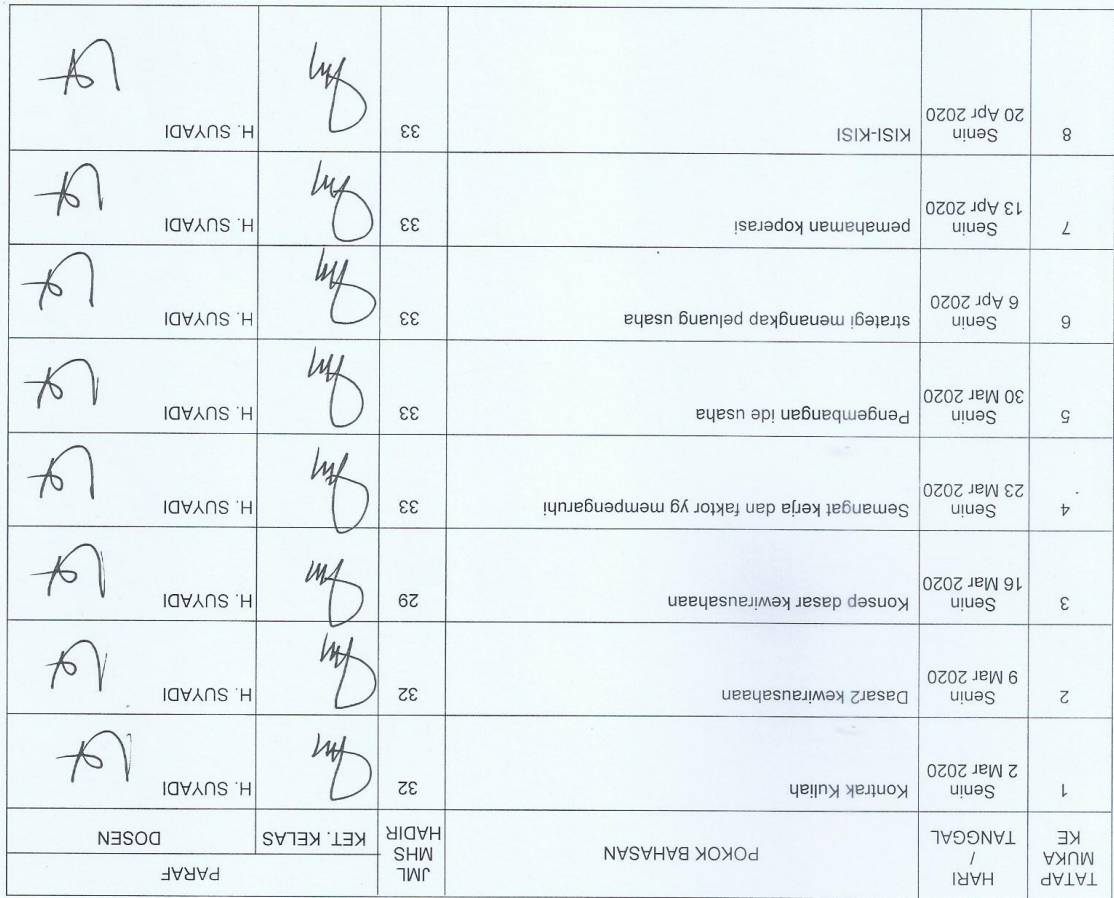 TATAP MUKA KE
HARI / TANGGAL
POKOK BAHASAN
JML MHS HADIR
PARAF
KET. KELAS
DOSEN
1
Senin
2 Mar 2020
Kontrak Kuliah
32
H. SUYADI
2
Senin
9 Mar 2020
Dasar2 kewirausahaan
32
H. SUYADI
3
Senin
16 Mar 2020
Konsep dasar kewirausahaan
29
H. SUYADI
4
Senin
23 Mar 2020
Semangat kerja dan faktor yg mempengaruhi
33
H. SUYADI
5
Senin
30 Mar 2020
Pengembangan ide usaha
33
H. SUYADI
6
Senin
6 Apr 2020
strategi menangkap peluang usaha
33
H. SUYADI
7
Senin
13 Apr 2020
pemahaman koperasi
33
H. SUYADI
8
Senin
20 Apr 2020
KISI-KISI
33
H. SUYADI